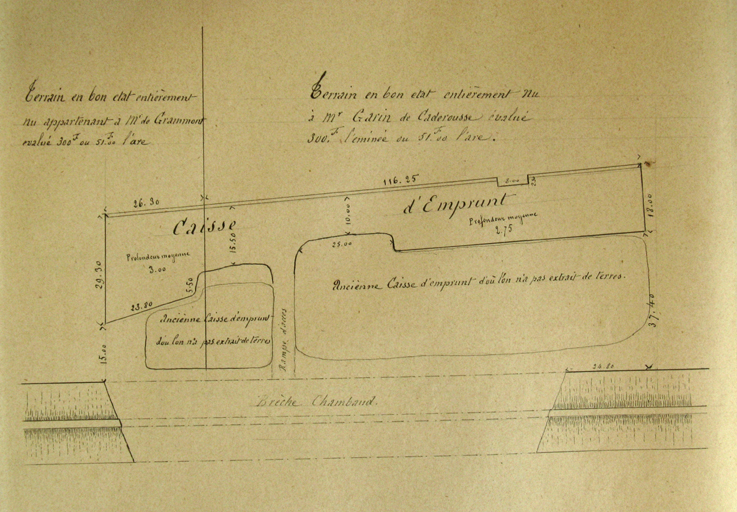 Terrain en bon etat entièrement
nu appartenant à Mr de Grammont
evalué 300F ou 51F.00 l'are
Terrain en bon etat entièrement nu
à Mr Garin de Caderousse evalué
300.F l'éminée ou 51.F 00 l'are.
26.30
116.25
Caisse
d'Emprunt
Profondeur moyenne
3.00
Profondeur moyenne
2.75
29.30
15.50
10.00
18.00
25.00
5.50
23.80
Ancienne Caisse d'emprunt
d'où l'on n'a pas extrait de terres
Ancienne Caisse d'emprunt d'où l'on n'a pas extrait de terres.
37.40
15.00
Rampe d'accès
20.80
Brèche Chambaud.